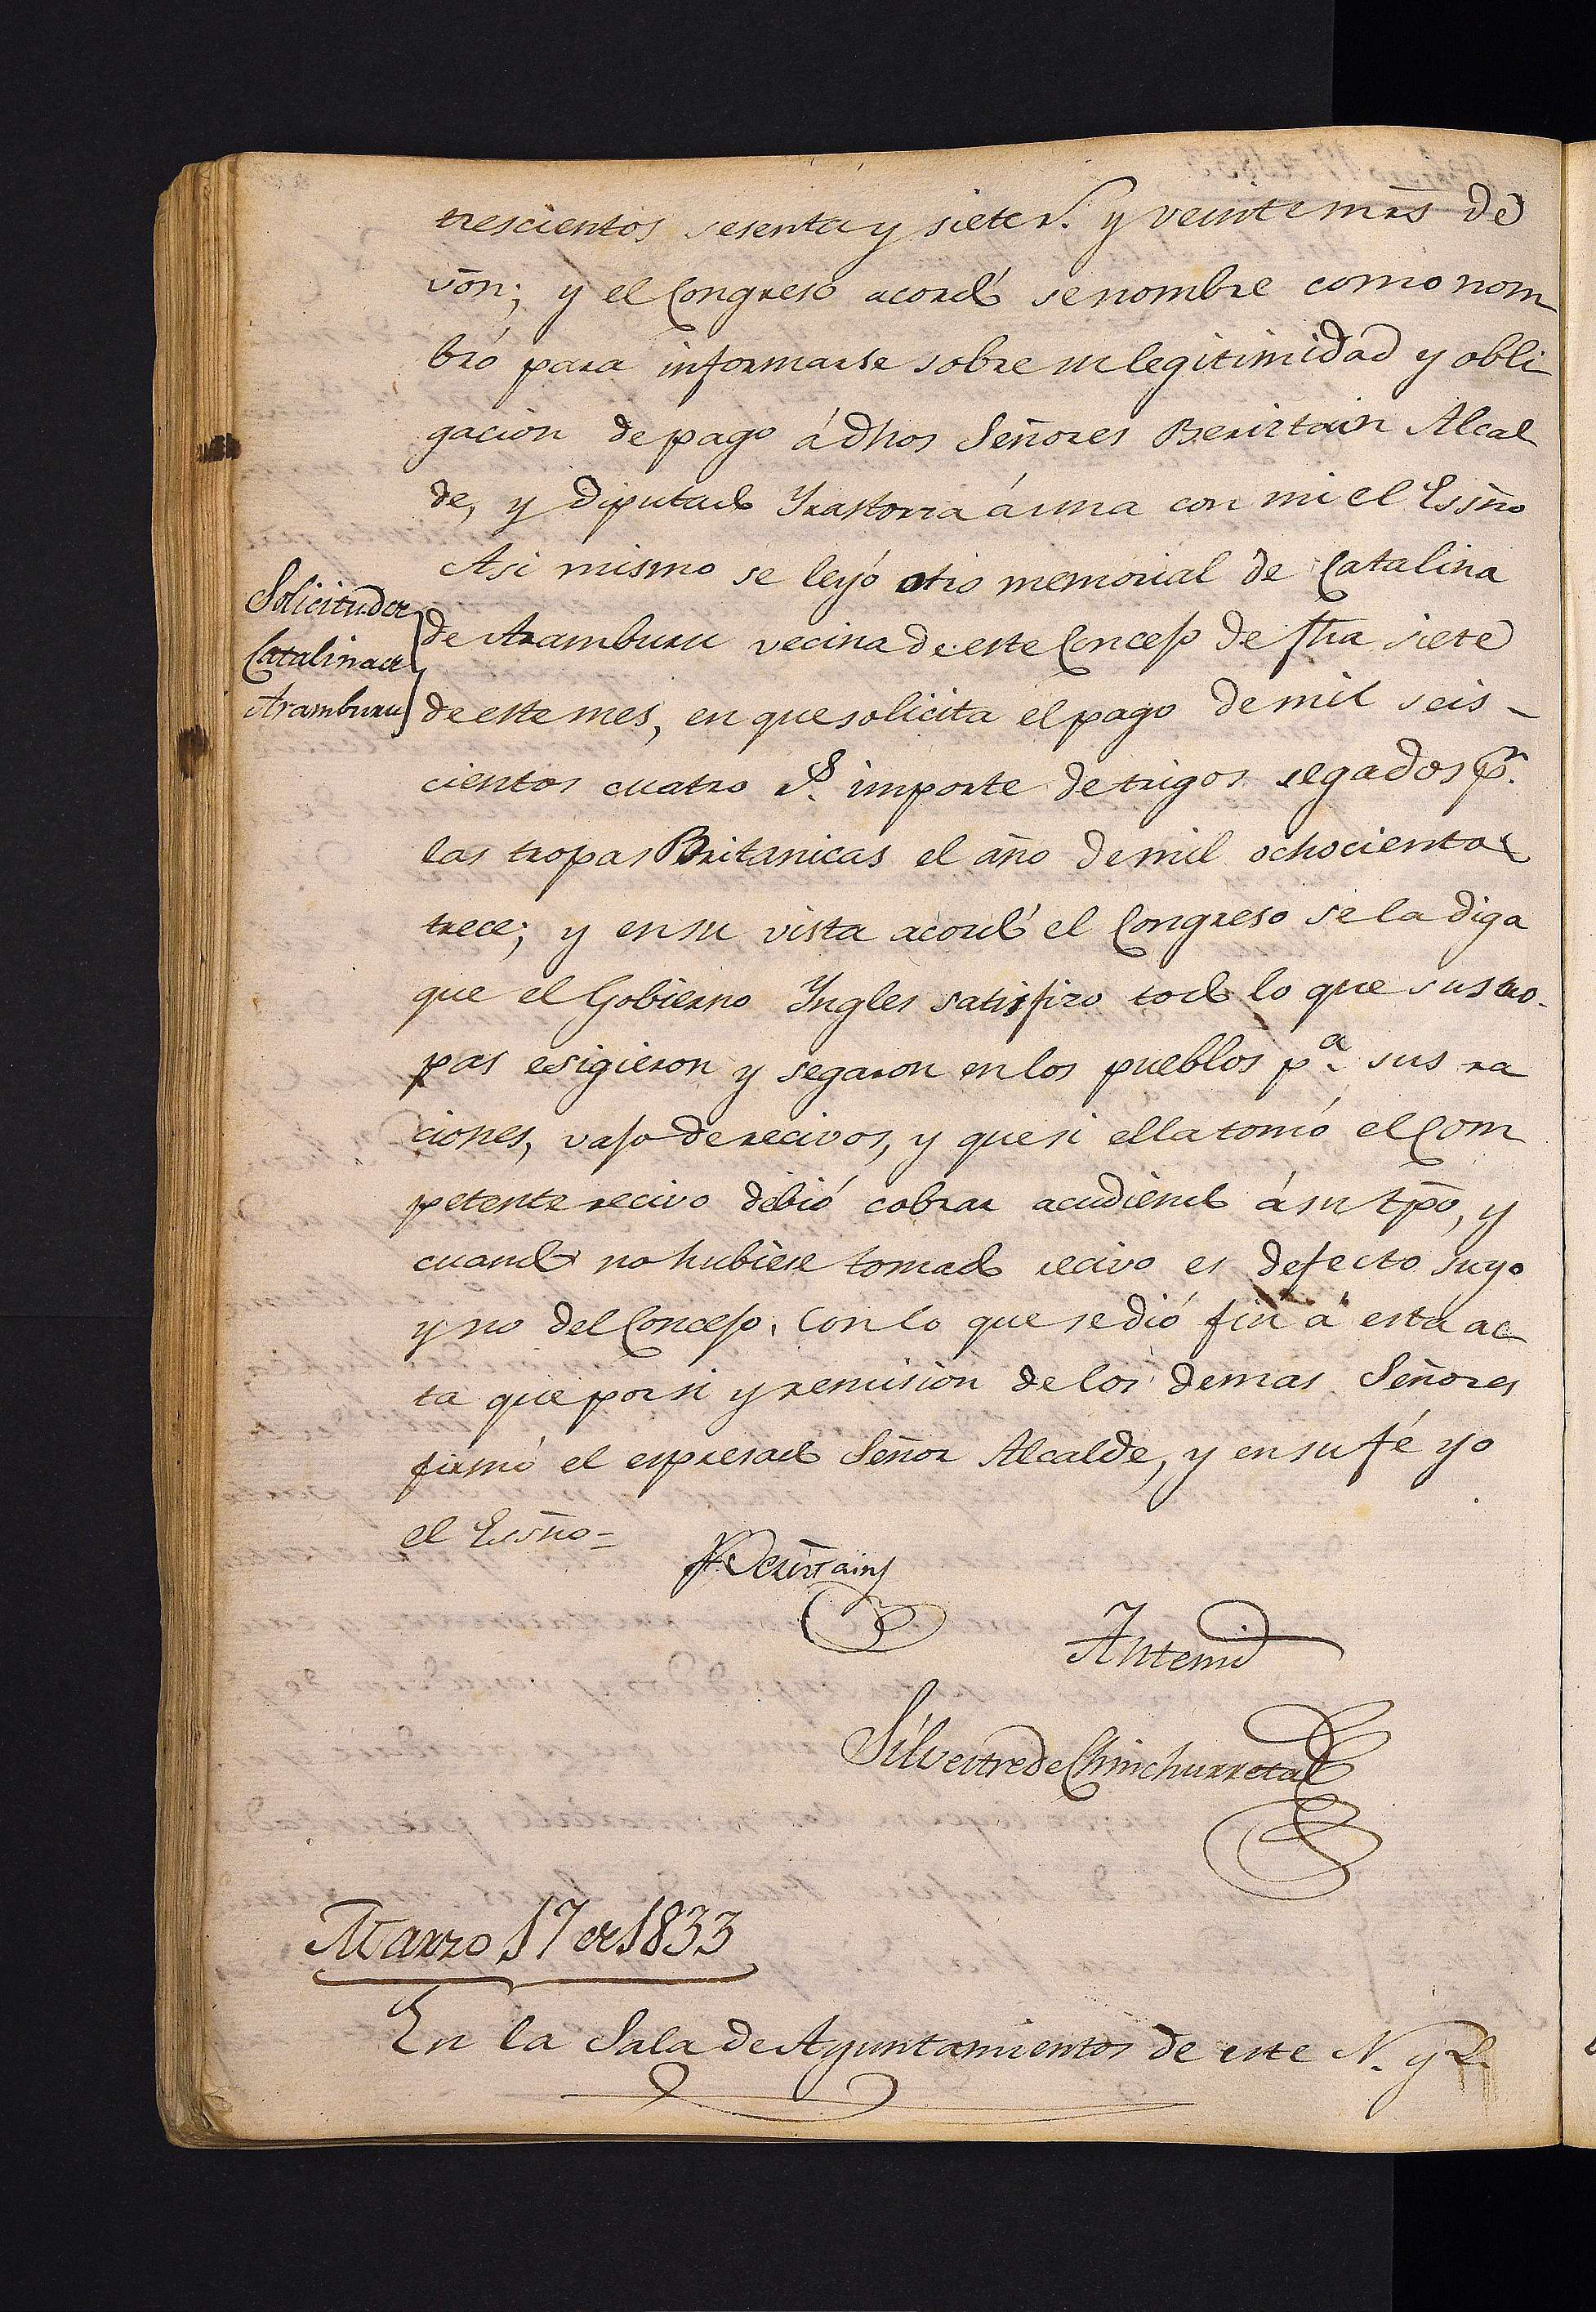 trescientos sesenta y siete r.s y veinte mrs de
vōn; y el Congreso acordó se nombre como nom
bró para informarse sobre su legitimidad y obli
gacion de pago á dhos Señores Beristain Alcal
de, y Diputado Yrastorza á una con mi el Essño
Solicitud de
Catalina de
Aramburu
Asi mismo se leyó otro memorial de Catalina
de Aramburu vecina de este Concejo de fha siete
de este mes, en que solicita el pago de mil seis-
cientos cuatro r.s importe de trigos segados p.r
las tropas Britanicas el año de mil ochocientos
trece; y en su vista acordó el Congreso se la diga
que el Gobierno Yngles satisfizo todo lo que sus tro-
pas esigieron y segaron en los pueblos p.a sus ra
ciones, vajo de recivos, y que si ella tomó el Com
petente recivo debió cobrar acudiendo á su tpō, y
cuando no hubiese tomado recivo es defecto suyo
y no del Concejo. Con lo que se dió fin á esta ac
ta que por si y remision de los demas Señores
firmó el espresado Señor Alcalde, y en su fé yo
el Essño=
Beristain
Antemi
Silvestre de Chinchurreta
Marzo 17 de 1833
En la Sala de Ayuntamientos de este N. y L.